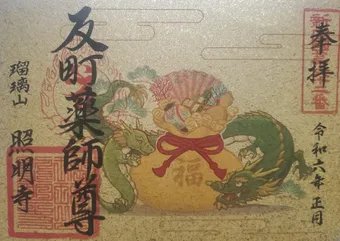 奉拝
令和六年正月
反町薬師尊
瑠璃山
照明寺
福